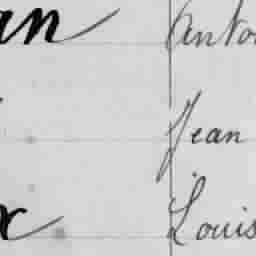 an Anto
Jean
x Louis